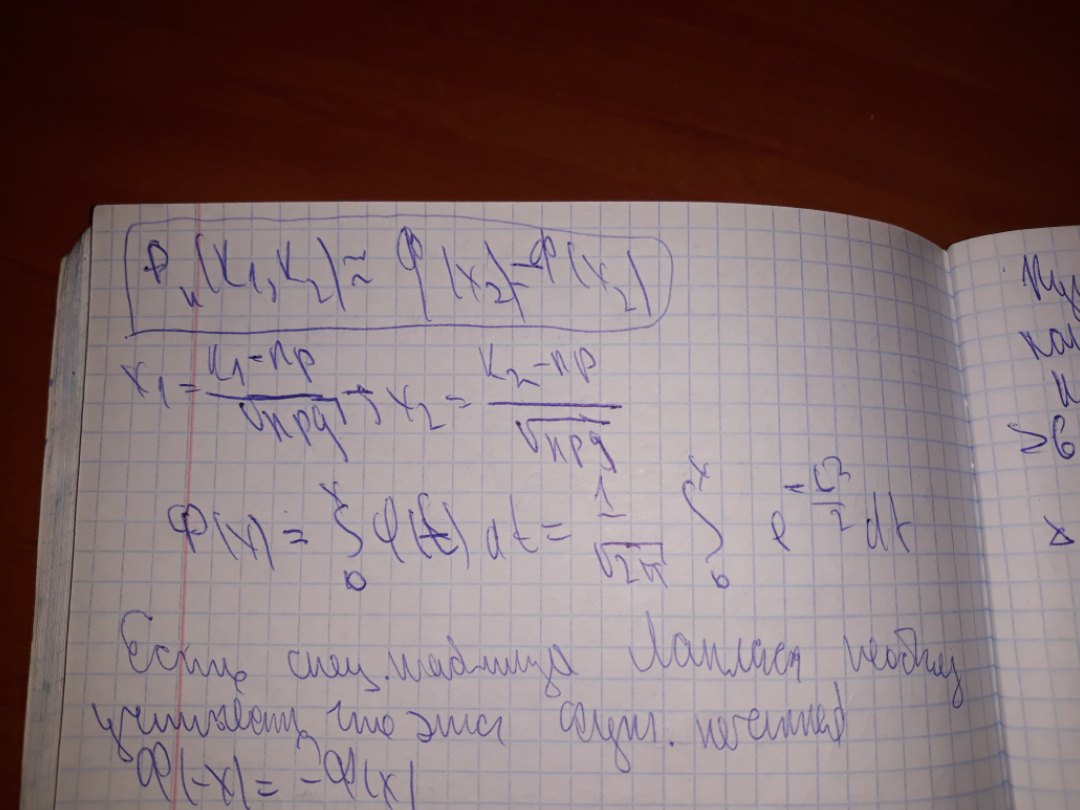 Pn(K1, K2) ≈ Φ(x2) - Φ(x2)
x1 = (K1 - np)/√npq ; x2 = (K2 - np)/√npq
Φ(x) = ∫₀ˣ φ(t) dt = 1/√2π ∫₀ˣ e^(-t²/2) dt
Есть спец. таблица Лапласа необход
учитывать, что эта функ. нечетная
Φ(-x) = -Φ(x)